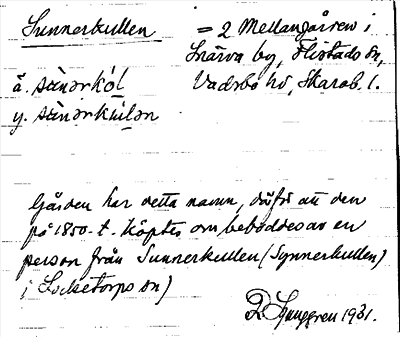 Sunnerkullen = 2 Mellangården i
Snärva by, Flistads sn,
ä. sùnərkól Vadsbo hd, Skarab. l.
y. sùnərkùlən
Gården har detta namn, därför att den
på 1850-t. köptes om beboddes av en
person från Sunnerkullen (Synnerkullen)
i Locketorps sn)
D. Ljunggren 1931.